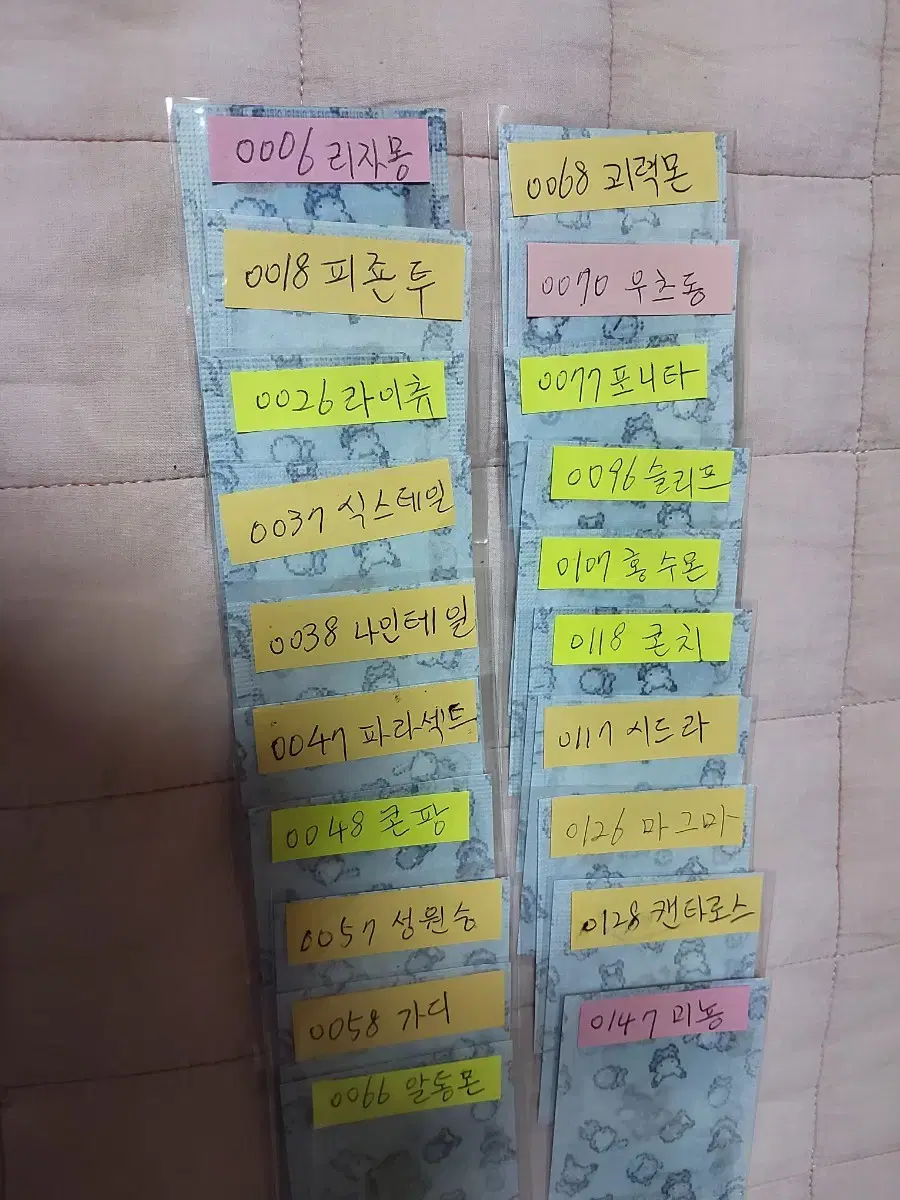 0006 리자몽
0018 피죤투
0026 라이츄
0037 식스테일
0038 나인테일
0047 파라섹트
0048 콘팡
0057 성원숭
0058 가디
0066 알통몬
0068 괴력몬
0070 우츠동
0077 포니타
0096 슬리프
0107 홍수몬
0118 콘치
0117 시드라
0126 마그마
0128 켄타로스
0147 미뇽